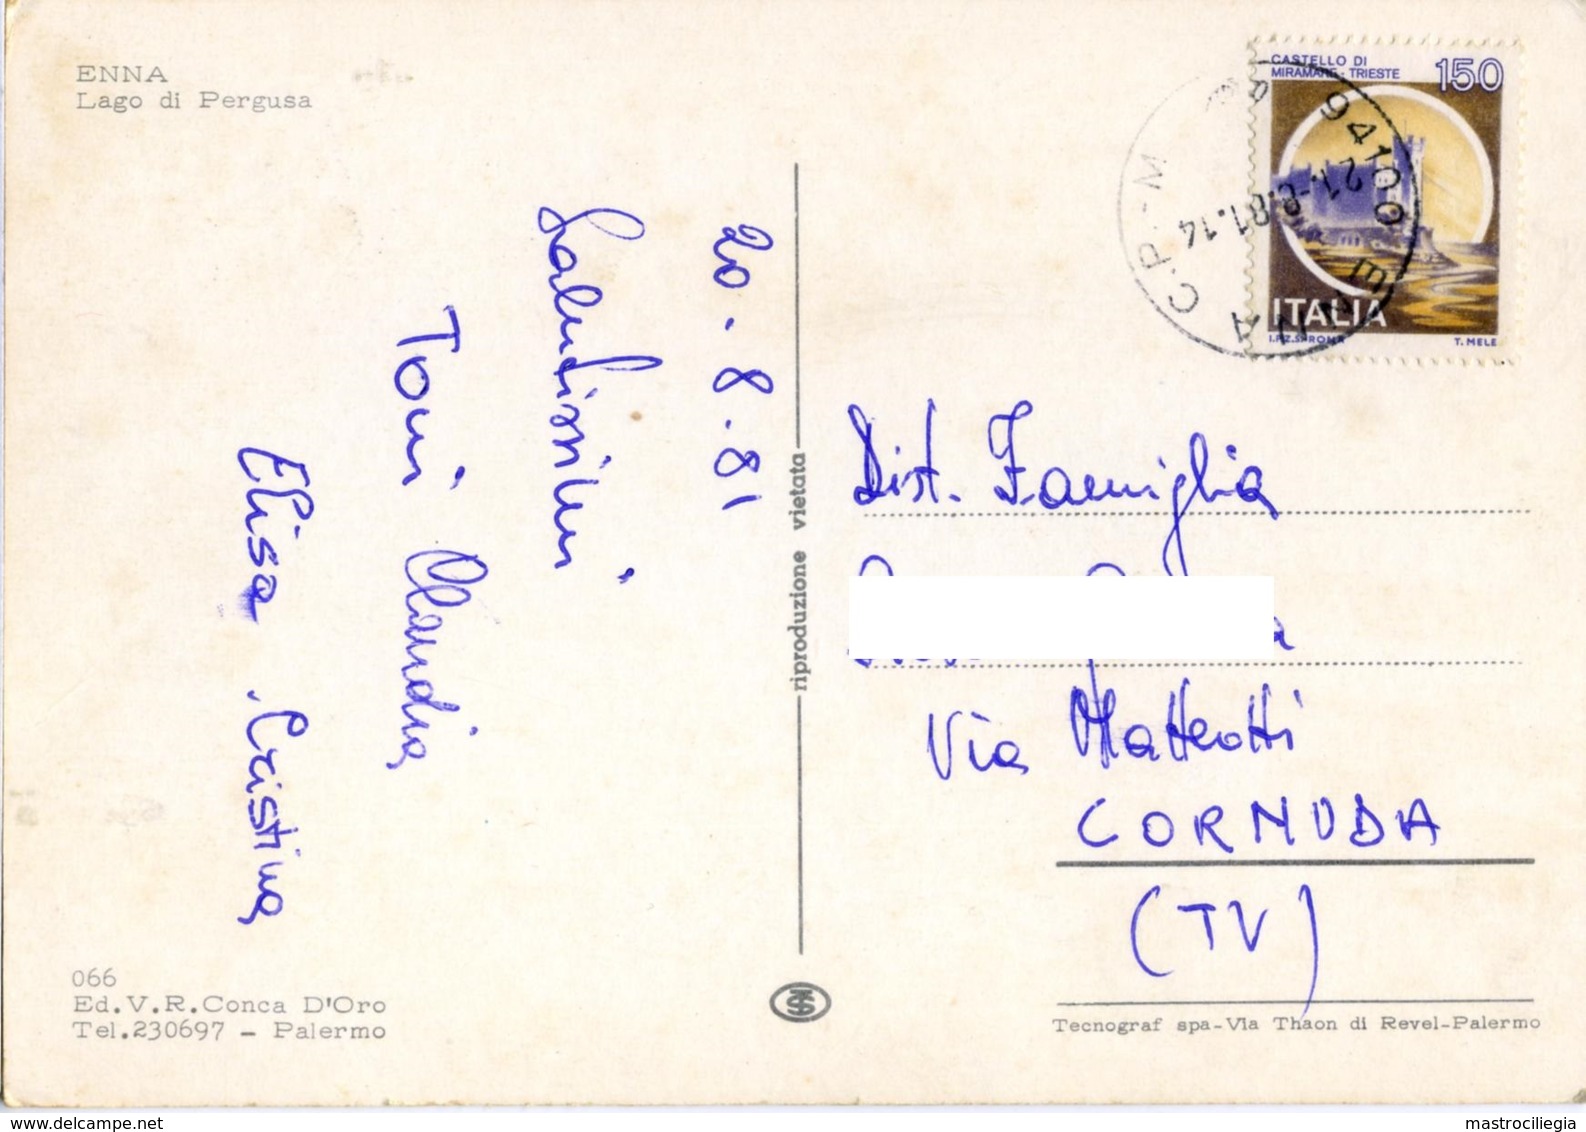 ENNA
Lago di Pergusa
20.8.81
Salutissimi
Toni Claudia
Elisa . Cristina
066
Ed.V.R.Conca D'Oro
Tel.230697 - Palermo
riproduzione vietata
CASTELLO DI
MIRAMARE - TRIESTE
150
ITALIA
I.P.Z.S. ROMA
T. MELE
94100 ENNA C.P-M
21.-8.81.14
Dist. Famiglia
Via Matteotti
CORNUDA
(TV)
Tecnograf spa-Via Thaon di Revel-Palermo
www.delcampe.net
mastrociliegia